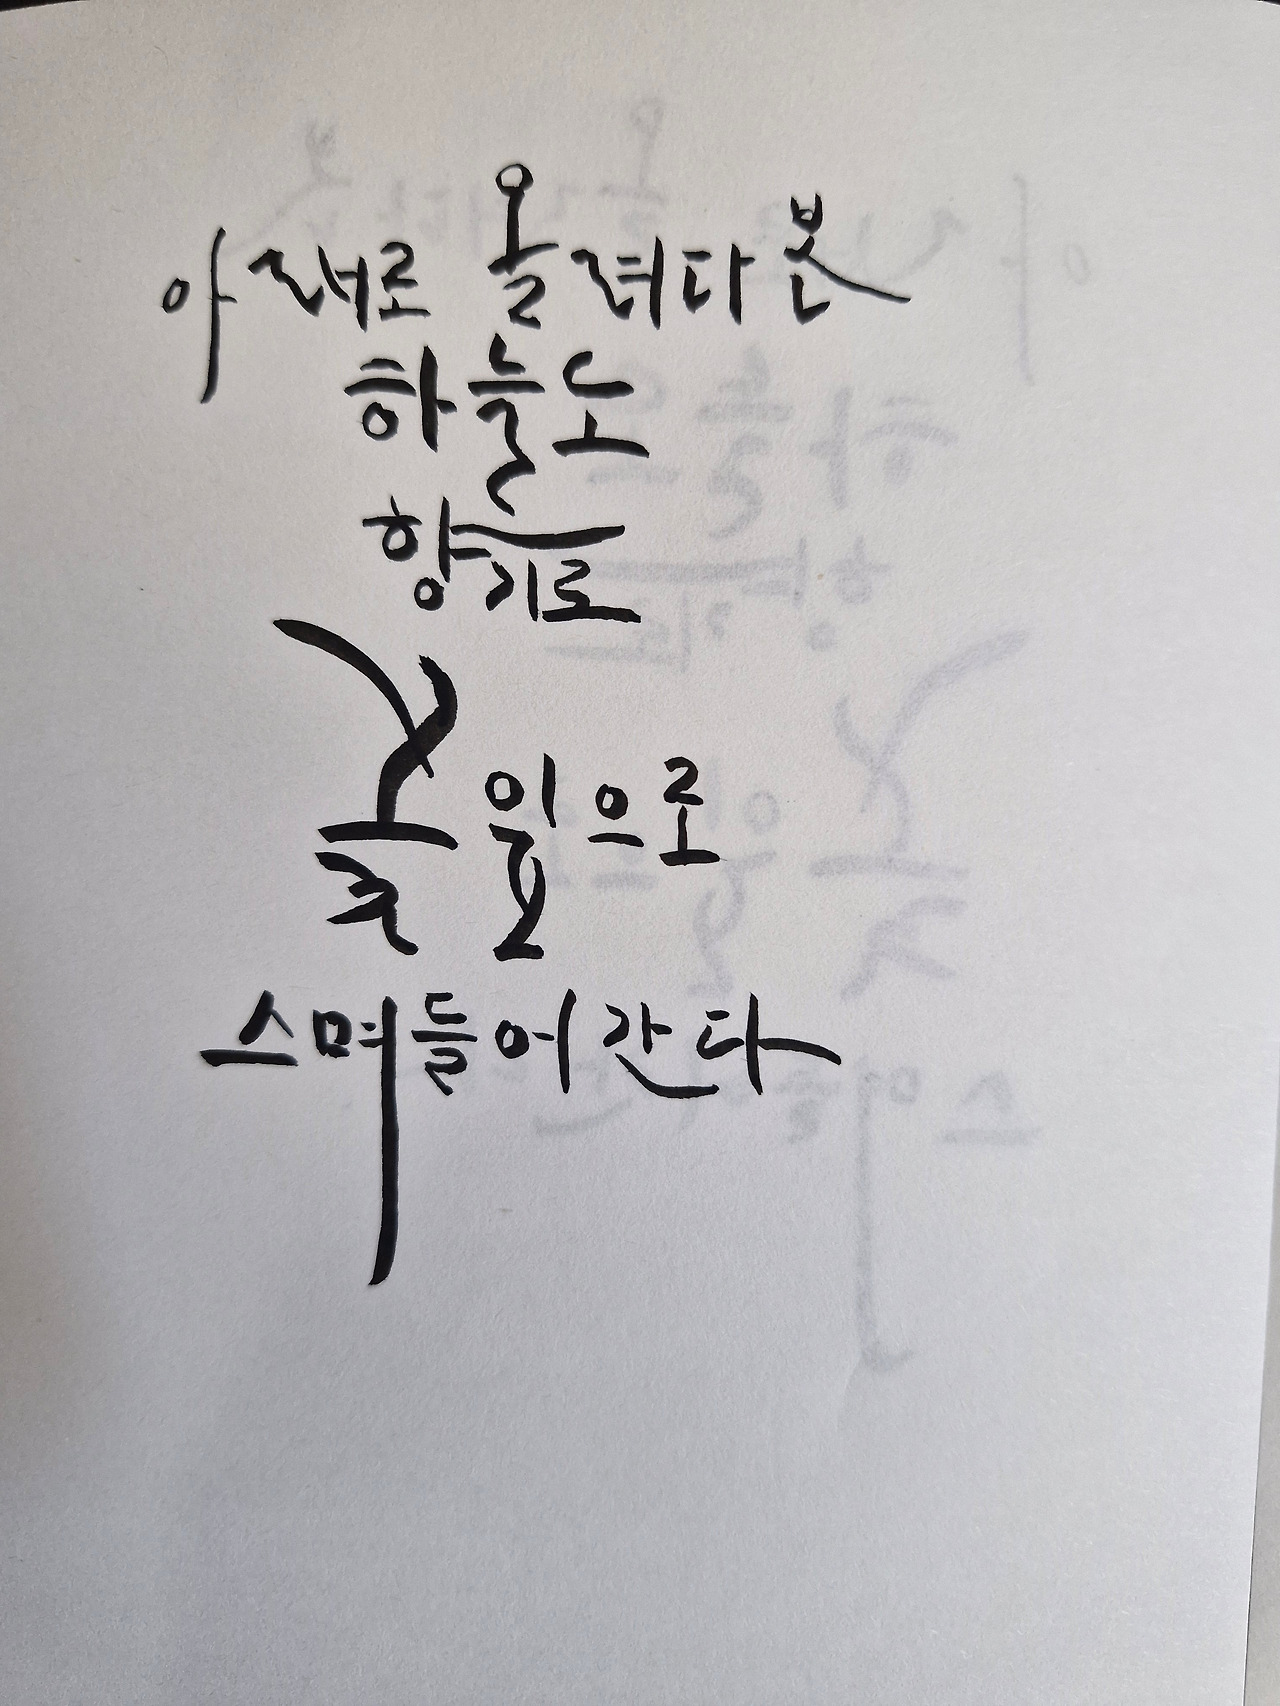 아래로 올려다 본
하늘도
향기로
꽃잎으로
스며들어간다